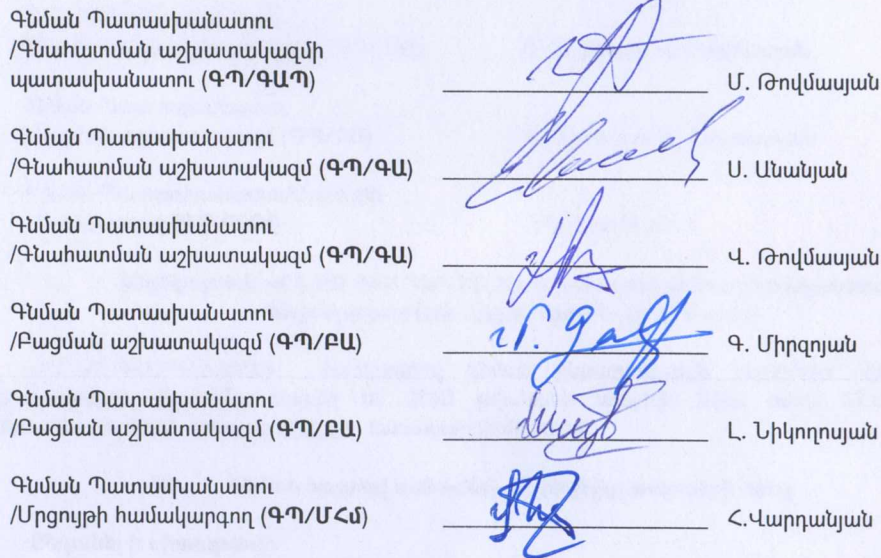 Գնման Պատասխանատու
/Գնահատման աշխատակազմի
պատասխանատու (ԳՊ/ԳԱՊ) Մ. Թովմասյան
Գնման Պատասխանատու
/Գնահատման աշխատակազմ (ԳՊ/ԳԱ) Ս. Անանյան
Գնման Պատասխանատու
/Գնահատման աշխատակազմ (ԳՊ/ԳԱ) Վ. Թովմասյան
Գնման Պատասխանատու
/Բացման աշխատակազմ (ԳՊ/ԲԱ) Գ. Միրզոյան
Գնման Պատասխանատու
/Բացման աշխատակազմ (ԳՊ/ԲԱ) Լ. Նիկողոսյան
Գնման Պատասխանատու
/Մրցույթի համակարգող (ԳՊ/ՄՀմ) Հ.Վարդանյան